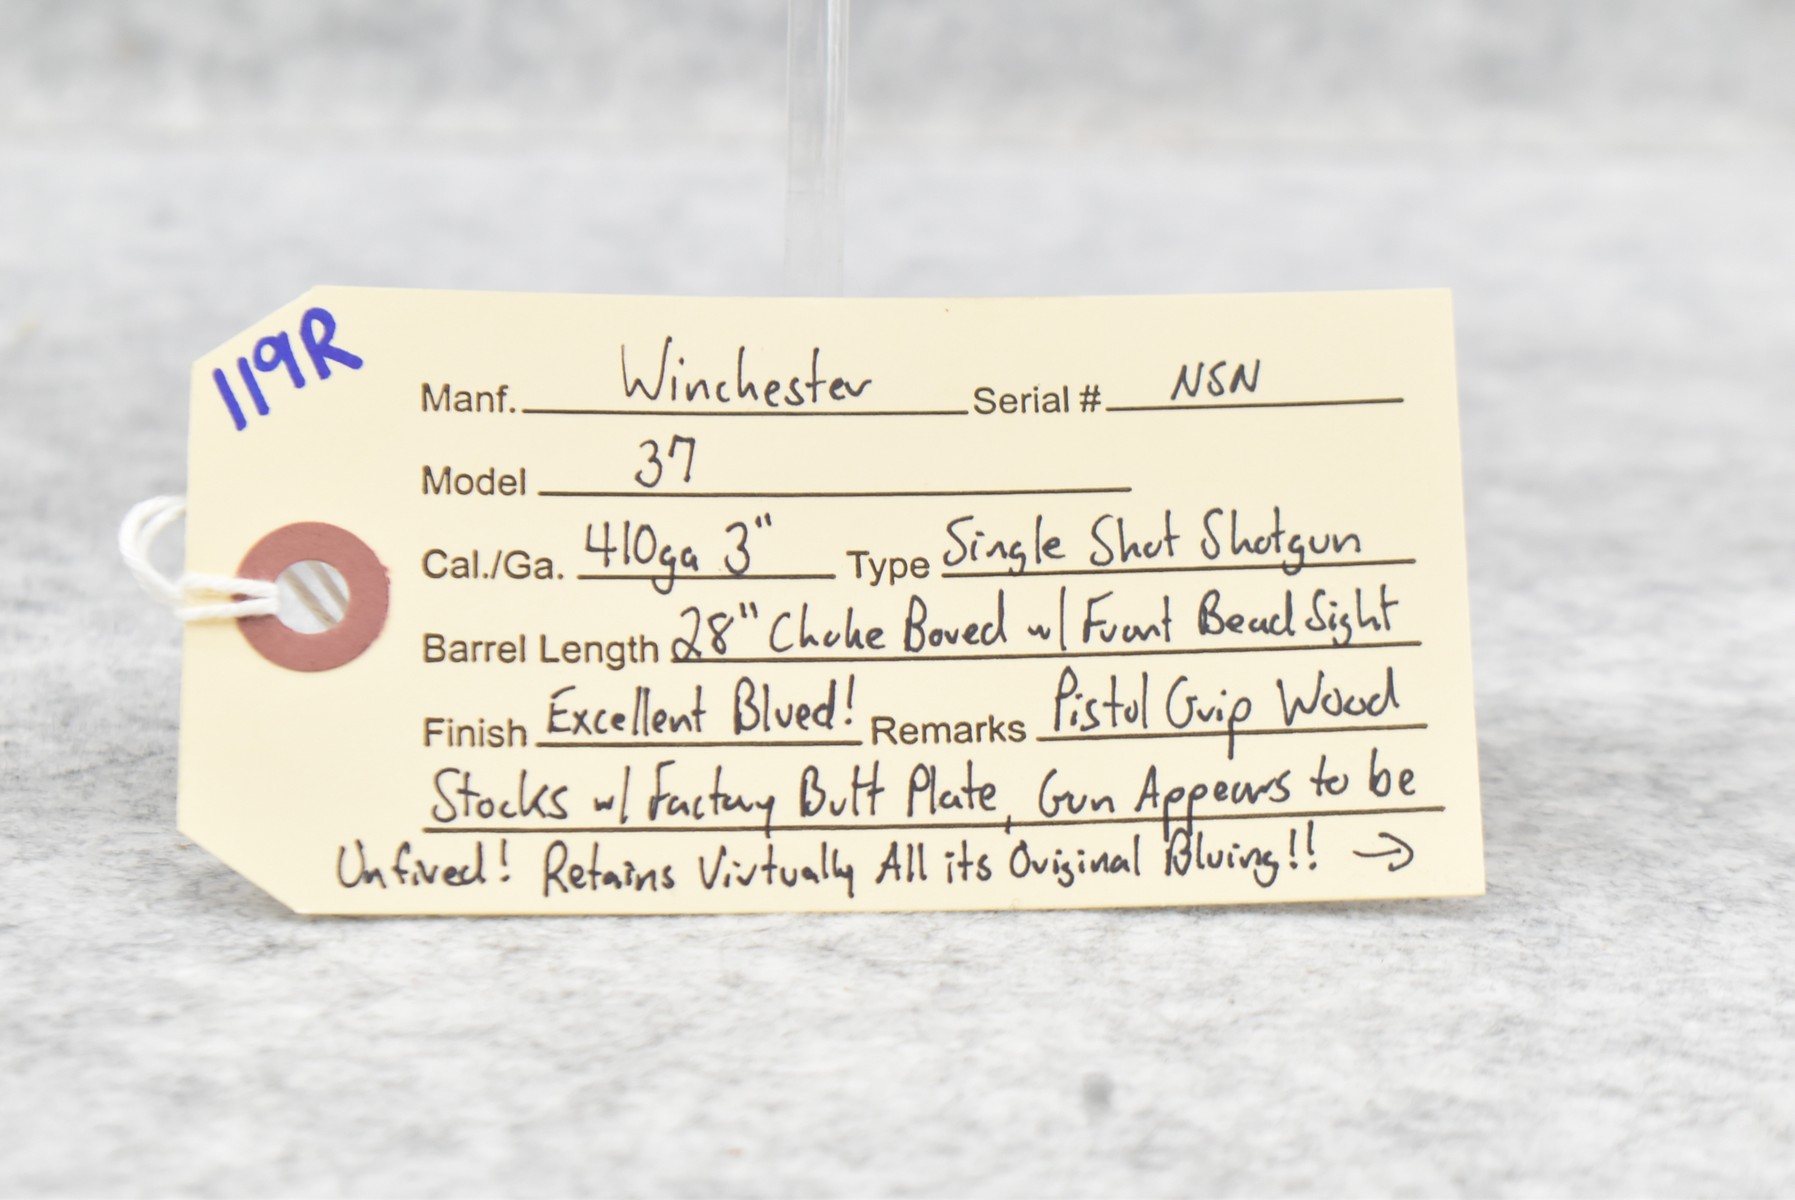 119R
Manf. Winchester Serial # NSN
Model 37
Cal./Ga. 410ga 3" Type Single Shot Shotgun
Barrel Length 28" Choke Bored w/ Front Bead Sight
Finish Excellent Blued! Remarks Pistol Grip Wood
Stocks w/ Factory Butt Plate, Gun Appears to be
Unfired! Retains Virtually All its Original Bluing!! →